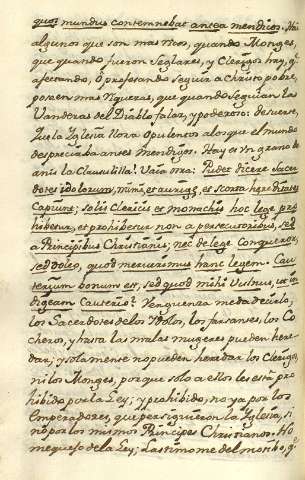 quos mundus contemnebat antea mendicos. Hai
algunos que son mas ricos, quando Monges,
que quando fueron Seglares, y Clerigos hay, q̃
afectando, ò profesando seguir a Christo pobre,
poseen mas riquezas, que quando seguian las
Vanderas del Diablo falaz, y poderoso: de suerte,
que la Yglesia llora opulentos alonque el mundo
despreciaba antes mendigos. Hay es un grano de
anis la Clausulilla! Vaia otra: Pudet dicere Sacer
dotes idolorum, mimi, et aurigæ, et scorta hereditates
Capiunt; solis Clericis et monachis hoc lege pro
hibetur, et prohibetur non a persecutoribus, sed
a Principibus Christianis; nec de lege conqueror,
sed doleo, quod meruerimus hanc legem. Cau
terium bonum est, sed quod mihi vulnus, ut in
digeam Cauterio? Verguenza me da decirlo,
los Sacerdotes de los Ydolos, los farsantes, los Co
cheros, y hasta las malas mugeres pueden here
dar; y solamente no pueden heredar los Clerigos,
ni los Monges, porque solo a ellos les està pro
hibido por la Ley; y prohibido, no ya por los
Emperadores, que persiguieron la Yglesia, si
nò por los mismos Principes Christianos. No
me quejo de la Ley; Lastimome del motibo, q̃